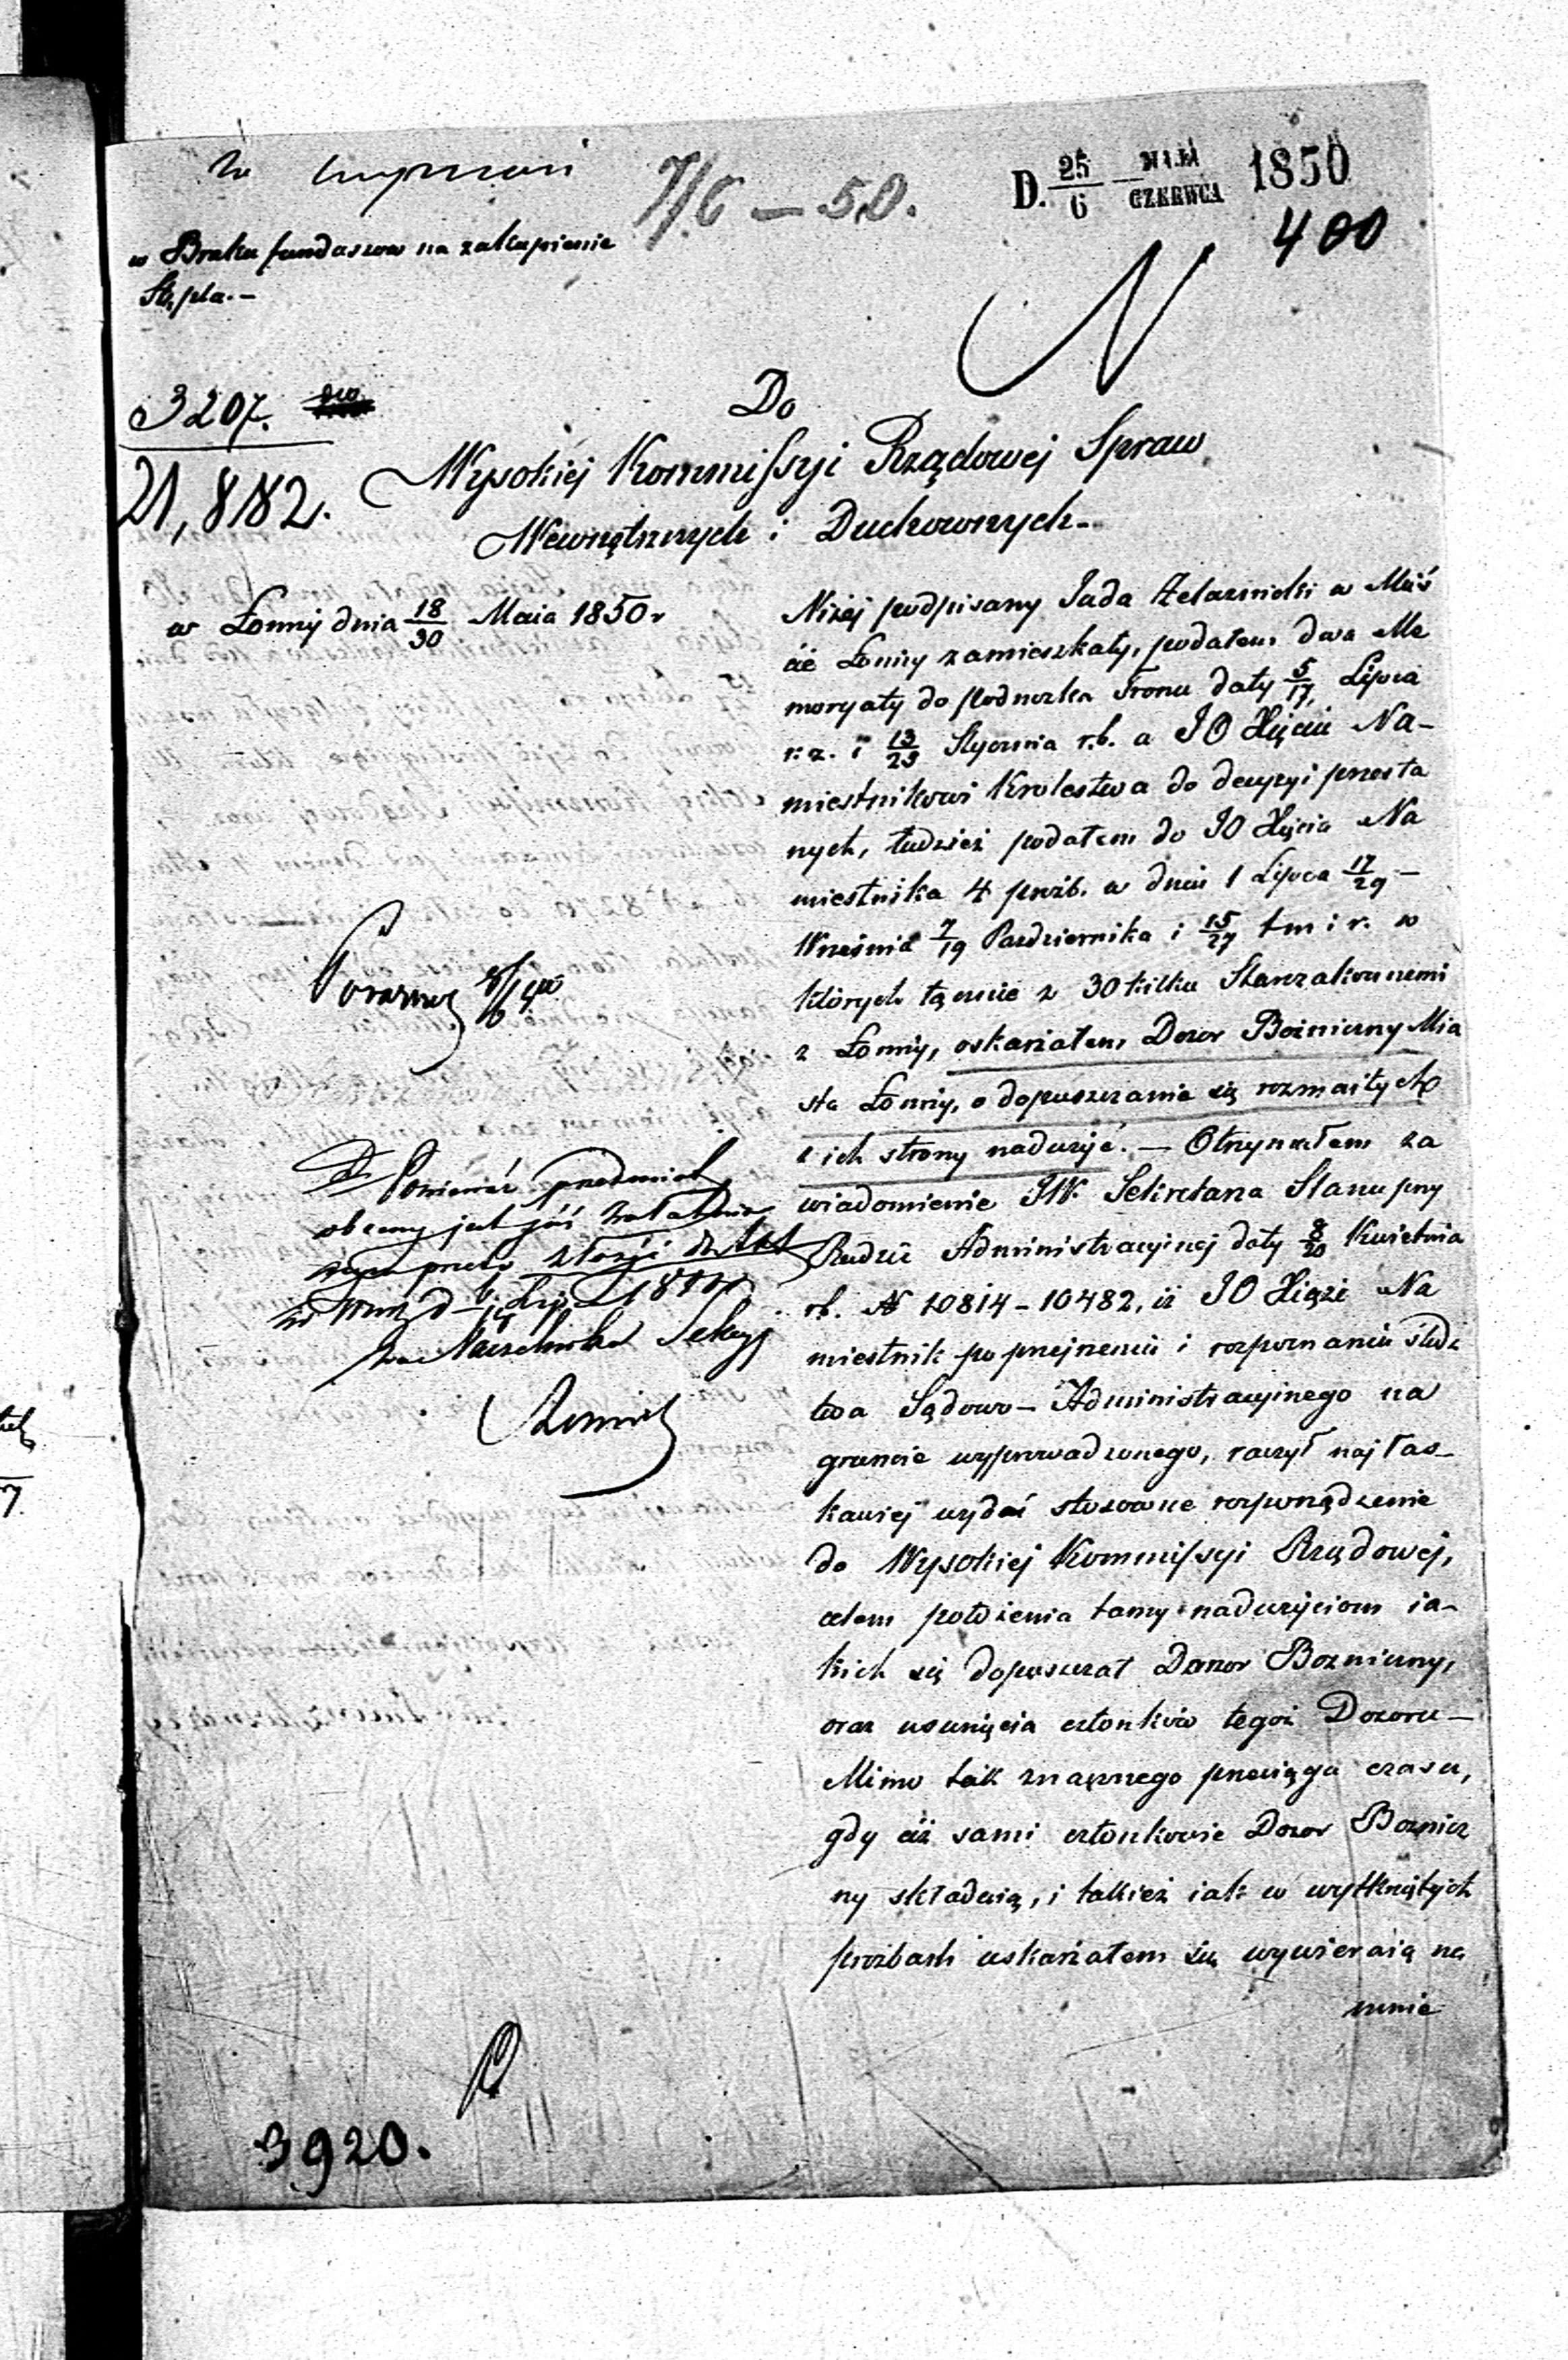 7/6 – 50.
D. 25/6 MAJA CZERWCA 1850
400
w Braku funduszow na zakupienie
Stępla.–
N
3207.
21,882.
Do
Wysokiej Kommissyi Rządowej Spraw
Wewnętrznych i Duchownych.–
w Łomży dnia 18/30 Maia 1850 r
Niżej podpisany Juda Żelaznicki w Mieś
cie Łomży zamieszkały, podałem dwa Me
moryały do podnozka Tronu daty 5/17 Lipca
r. z. i 13/25 Stycznia r.b. a JO Xięciu Na–
miestnikowi Krolestwa do decyzyi przesła
nych, tudzież podałem do JO Xięcia Na
miestnika 4 proźb. w dniu 1 Lipca 17/29 –
Września 7/19 Pazdziernika i 15/27 t m i r. w
których łącznie z 30 kilku Starozakonnemi
z Łomży, oskarżałem Dozor Bożniczny Mia
sta Łomży, o dopuszczanie się rozmaitych
z ich strony nadużyć. – Otrzymałem za
wiadomienie JW. Sekretarza Stanu przy
Radzie Administracyjnej daty 8/20 Kwietnia
rb. N 10814–10482, iż JO Xiąże Na
miestnik po przejrzeniu i rozpoznaniu śledz
twa Sądowo–Administracyjnego na
gruncie wyprowadzonego, raczył najłas–
kawiej wydać stosowne rozporządzenie
do Wysokiej Kommissyi Rządowej,
celem położenia tamy nadużyciom ia–
kich się dopuszczał Dozor Bozniczny,
oraz usunięcia członków tegoż Dozoru –
Mimo tak znacznego przeciągu czasu,
gdy ciż sami członkowie Dozor Boznicz
ny składaią, i takież iak w wytkniętych
prozbach uskarżałem się wywieraią na
mnie
Ponieważ przedmiot
obecny jest już załatwio
przeto złożyć do Akt
Naczelnika Sekcyi
3920.